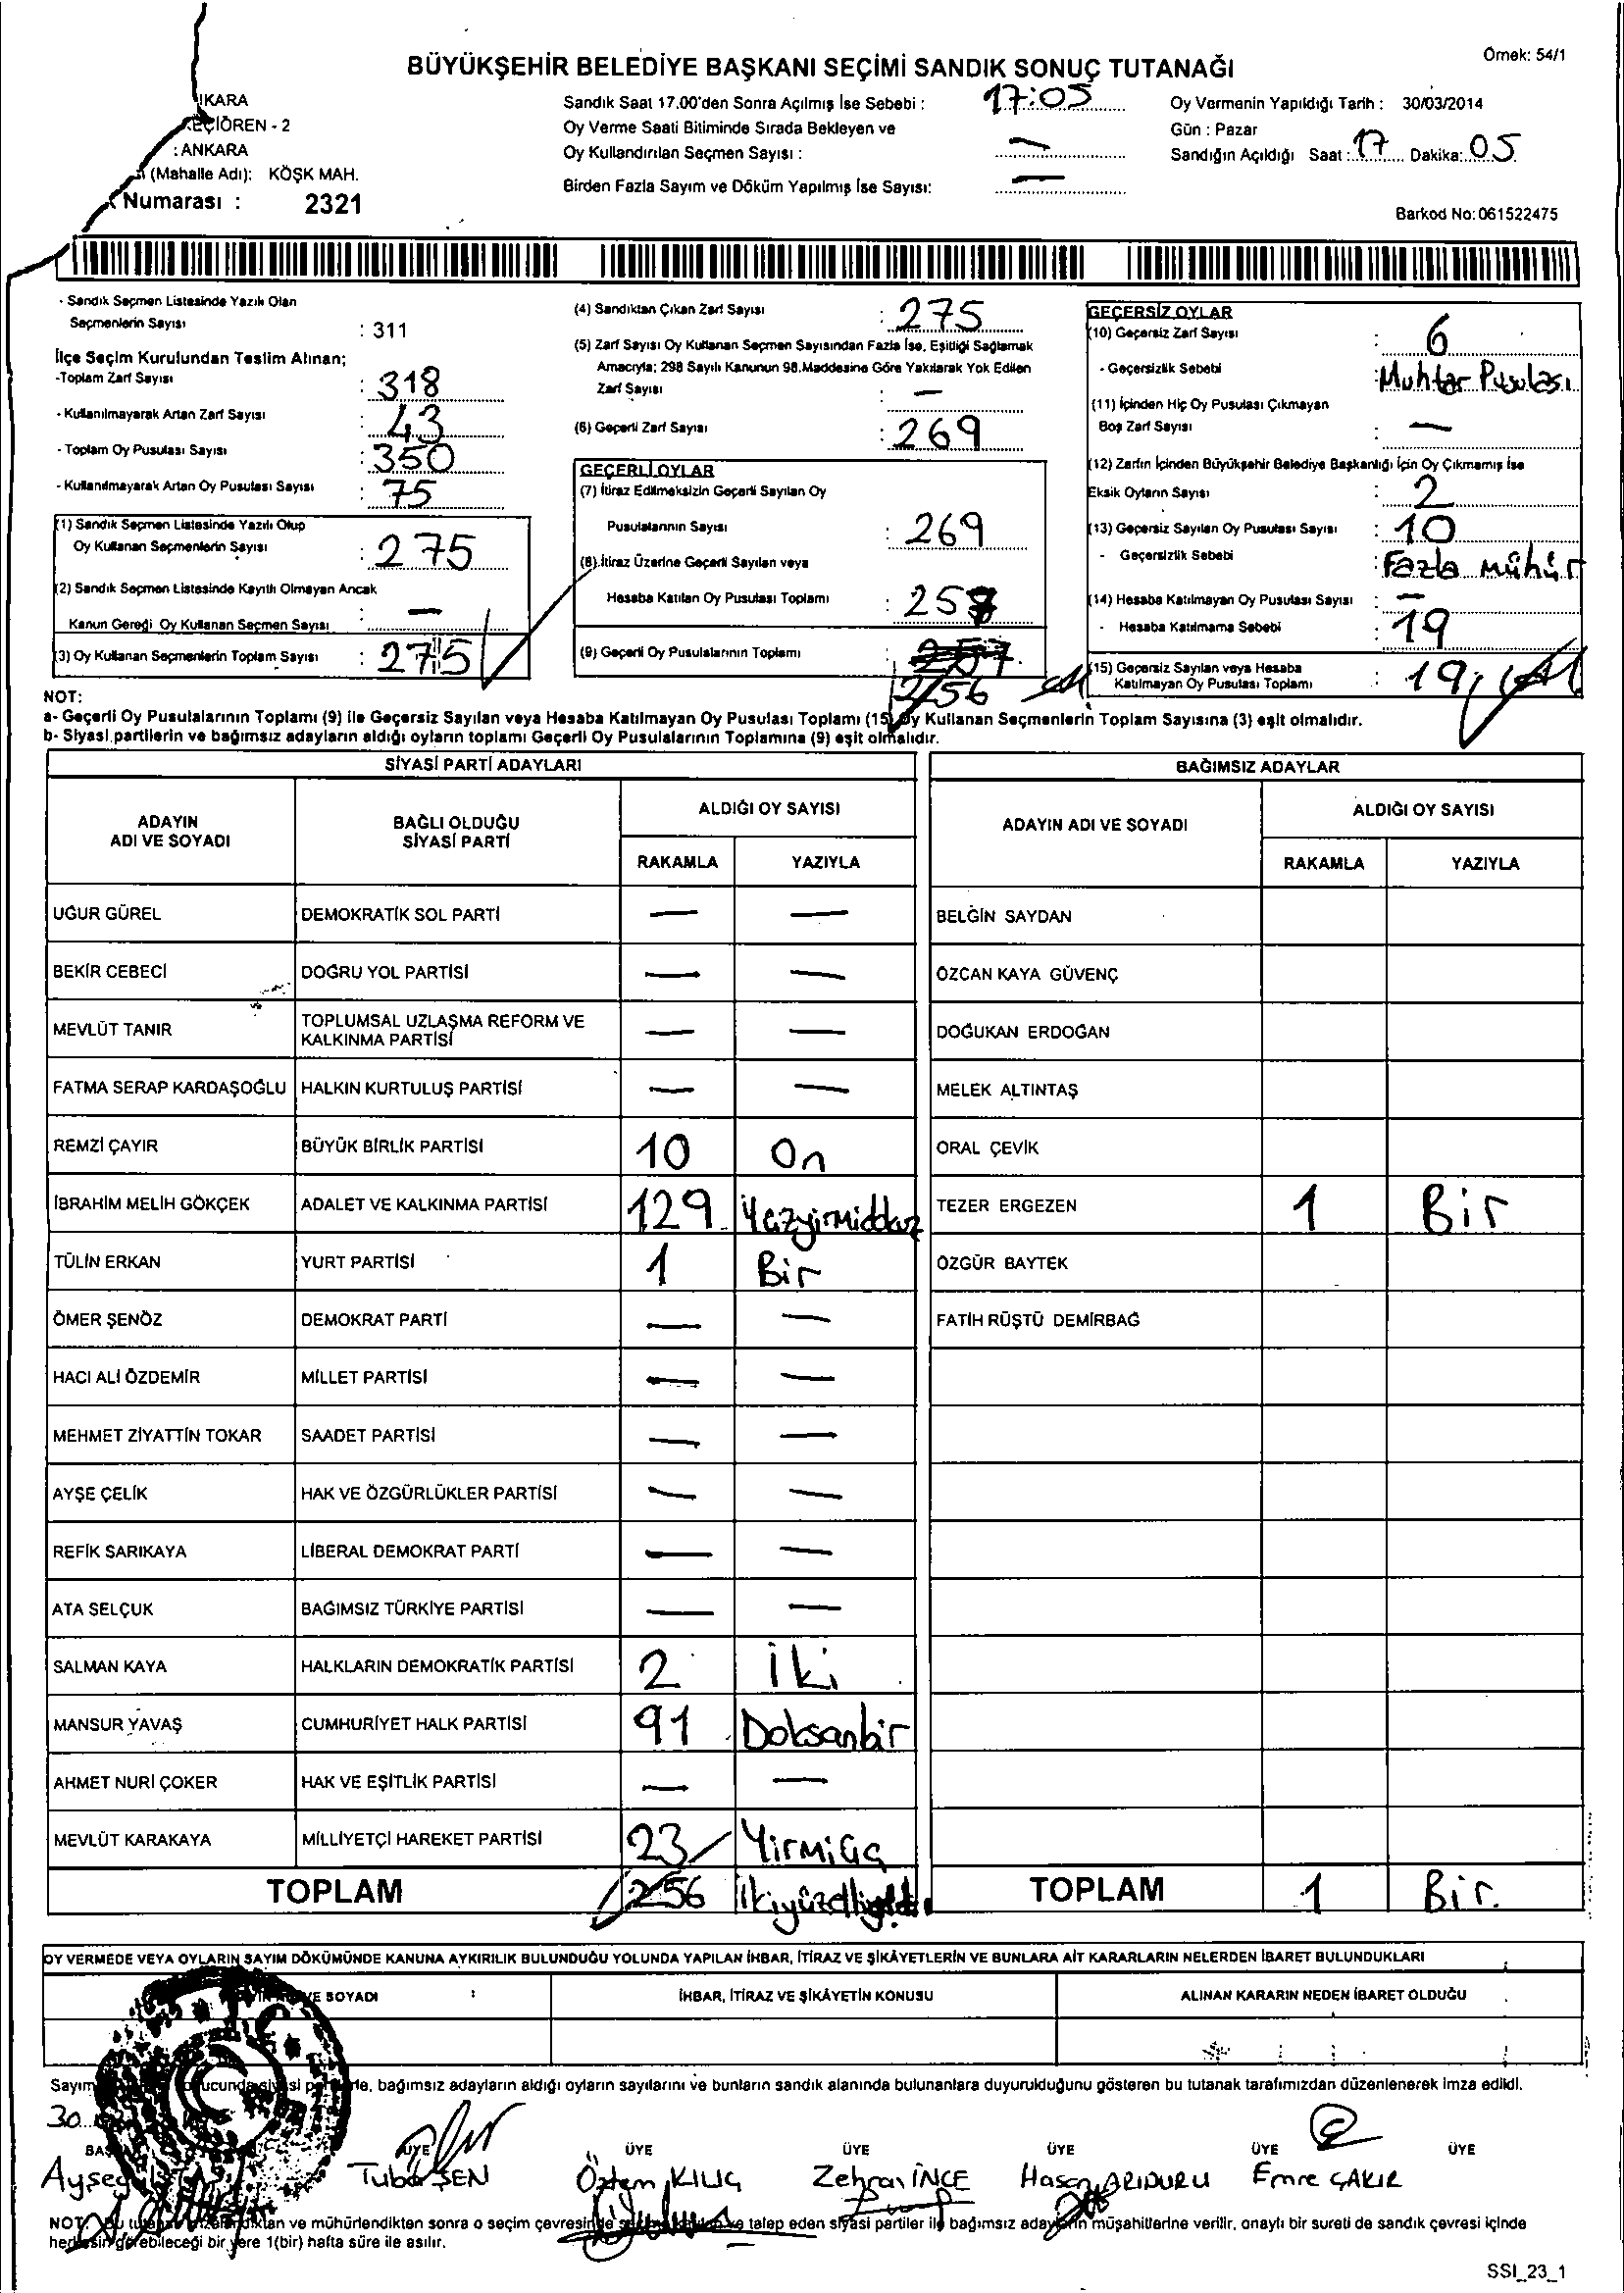 Örnek: 54/1
BÜYÜKŞEHİR BELEDİYE BAŞKANI SEÇİMİ SANDIK SONUÇ TUTANAĞI
Sandık Saat 17.00'den Sonra Açılmış İse Sebebi : 17:05
Oy Verme Saati Bitiminde Sırada Bekleyen ve
Oy Kullandırılan Seçmen Sayısı : —
Birden Fazla Sayım ve Döküm Yapılmış İse Sayısı: —
Oy Vermenin Yapıldığı Tarih : 30/03/2014
Gün : Pazar
Sandığın Açıldığı Saat : 17 Dakika: 05
Barkod No: 061522475
KARA
ÖREN - 2
: ANKARA
(Mahalle Adı): KÖŞK MAH.
Numarası : 2321
- Sandık Seçmen Listesinde Yazılı Olan
Seçmenlerin Sayısı : 311
İlçe Seçim Kurulundan Teslim Alınan;
-Toplam Zarf Sayısı : 318
- Kullanılmayarak Artan Zarf Sayısı : 43
- Toplam Oy Pusulası Sayısı : 350
- Kullanılmayarak Artan Oy Pusulası Sayısı : 75
(1) Sandık Seçmen Listesinde Yazılı Olup
Oy Kullanan Seçmenlerin Sayısı : 275
(2) Sandık Seçmen Listesinde Kayıtlı Olmayan Ancak
Kanun Gereği Oy Kullanan Seçmen Sayısı : —
(3) Oy Kullanan Seçmenlerin Toplam Sayısı : 275
(4) Sandıktan Çıkan Zarf Sayısı : 275
(5) Zarf Sayısı Oy Kullanan Seçmen Sayısından Fazla İse, Eşitliği Sağlamak
Amacıyla; 298 Sayılı Kanunun 98.Maddesine Göre Yakılarak Yok Edilen
Zarf Sayısı : —
(6) Geçerli Zarf Sayısı : 269
GEÇERLİ OYLAR
(7) İtiraz Edilmeksizin Geçerli Sayılan Oy
Pusulalarının Sayısı : 269
(8) İtiraz Üzerine Geçerli Sayılan veya
Hesaba Katılan Oy Pusulası Toplamı :
(9) Geçerli Oy Pusulalarının Toplamı : 257
256
GEÇERSİZ OYLAR
(10) Geçersiz Zarf Sayısı : 6
- Geçersizlik Sebebi : Muhtar Pusulası
(11) İçinden Hiç Oy Pusulası Çıkmayan
Boş Zarf Sayısı : —
(12) Zarfın İçinden Büyükşehir Belediye Başkanlığı İçin Oy Çıkmamış İse
Eksik Oyların Sayısı : 2
(13) Geçersiz Sayılan Oy Pusulası Sayısı : 10
- Geçersizlik Sebebi : Fazla Mühür
(14) Hesaba Katılmayan Oy Pusulası Sayısı : —
- Hesaba Katılmama Sebebi : 19
(15) Geçersiz Sayılan veya Hesaba
Katılmayan Oy Pusulası Toplamı : 19
NOT:
a- Geçerli Oy Pusulalarının Toplamı (9) ile Geçersiz Sayılan veya Hesaba Katılmayan Oy Pusulası Toplamı (15) Oy Kullanan Seçmenlerin Toplam Sayısına (3) eşit olmalıdır.
b- Siyasi partilerin ve bağımsız adayların aldığı oyların toplamı Geçerli Oy Pusulalarının Toplamına (9) eşit olmalıdır.
SİYASİ PARTİ ADAYLARI
ADAYIN ADI VE SOYADI BAĞLI OLDUĞU SİYASİ PARTİ ALDIĞI OY SAYISI
RAKAMLA YAZIYLA
UĞUR GÜREL DEMOKRATİK SOL PARTİ — —
BEKİR CEBECİ DOĞRU YOL PARTİSİ — —
MEVLÜT TANIR TOPLUMSAL UZLAŞMA REFORM VE KALKINMA PARTİSİ — —
FATMA SERAP KARDAŞOĞLU HALKIN KURTULUŞ PARTİSİ — —
REMZİ ÇAYIR BÜYÜK BİRLİK PARTİSİ 10 On
İBRAHİM MELİH GÖKÇEK ADALET VE KALKINMA PARTİSİ 129 Yüzyirmidokuz
TÜLİN ERKAN YURT PARTİSİ 1 Bir
ÖMER ŞENÖZ DEMOKRAT PARTİ — —
HACI ALİ ÖZDEMİR MİLLET PARTİSİ — —
MEHMET ZİYATTİN TOKAR SAADET PARTİSİ — —
AYŞE ÇELİK HAK VE ÖZGÜRLÜKLER PARTİSİ — —
REFİK SARIKAYA LİBERAL DEMOKRAT PARTİ — —
ATA SELÇUK BAĞIMSIZ TÜRKİYE PARTİSİ — —
SALMAN KAYA HALKLARIN DEMOKRATİK PARTİSİ 2 İki
MANSUR YAVAŞ CUMHURİYET HALK PARTİSİ 91 Doksanbir
AHMET NURİ ÇOKER HAK VE EŞİTLİK PARTİSİ — —
MEVLÜT KARAKAYA MİLLİYETÇİ HAREKET PARTİSİ 23 Yirmiüç
TOPLAM 256
BAĞIMSIZ ADAYLAR
ADAYIN ADI VE SOYADI ALDIĞI OY SAYISI
RAKAMLA YAZIYLA
BELGİN SAYDAN
ÖZCAN KAYA GÜVENÇ
DOĞUKAN ERDOĞAN
MELEK ALTINTAŞ
ORAL ÇEVİK
TEZER ERGEZEN 1 Bir
ÖZGÜR BAYTEK
FATİH RÜŞTÜ DEMİRBAĞ
TOPLAM 1 Bir.
OY VERMEDE VEYA OYLARIN SAYIM DÖKÜMÜNDE KANUNA AYKIRILIK BULUNDUĞU YOLUNDA YAPILAN İHBAR, İTİRAZ VE ŞİKÂYETLERİN VE BUNLARA AİT KARARLARIN NELERDEN İBARET BULUNDUKLARI
VE SOYADI İHBAR, İTİRAZ VE ŞİKÂYETİN KONUSU ALINAN KARARIN NEDEN İBARET OLDUĞU
Sayım bağımsız adayların aldığı oyların sayılarını ve bunların sandık alanında bulunanlara duyurulduğunu gösteren bu tutanak tarafımızdan düzenlenerek imza edildi.
30
ÜYE ÜYE ÜYE ÜYE ÜYE ÜYE
Tuba ŞEN Özlem KILIÇ Zehra İNCE Hasan ARIDURU Emre ÇAKIR
NOT: ve mühürlendikten sonra o seçim çevresinde talep eden siyasi partiler ile bağımsız adayların müşahitlerine verilir, onaylı bir sureti de sandık çevresi içinde
herkesin görebileceği bir yere 1(bir) hafta süre ile asılır.
SSI_23_1